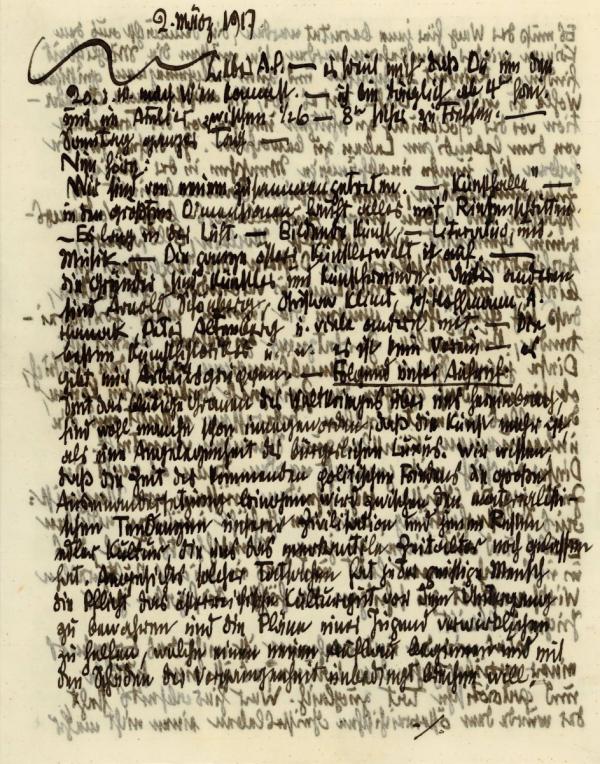 2. März 1917
Lieber A.P. — es freut mich daß Du um den
20. d. M. nach Wien kommst. — ich bin täglich ab 4h
und im Atelier zwischen 1/26 – 8h Uhr zu treffen. —
Sonntag ganzer Tag —
Nun hörg:
Wir sind von neuem zusammengetreten. — „Kunsthalle" —
in den größten Dimensionen, läuft alles mit Riesenschritten.
– Es lag in der Luft. — Bildende Kunst, — Literatur, und
Musik. — Die ganze Künstlerwelt ist auf. —
die Gründer sind Künstler und Kunstfreunde. Unter anderen
sind Arnold Schönberg, Gustav Klimt, Jos. Hoffmann, A.
Hanak, Peter Altenberg u. viele andere mit. — Die
besten Kunsthistoriker u. u. es ist kein Verein — es
gibt nur Arbeitsgruppen. — Folgend unser Aufruf:
Seit das blutige Grauen des Weltkrieges über uns hereinbrach,
sind wohl manche schon innegeworden, daß die Kunst mehr ist
als eine Angelegenheit des bürgerlichen Luxus. Wir wissen
daß die Zeit des kommenden politischen Friedens die großen
Auseinandersetzung bringen wird zwischen den materialisti-
schen Tendenzen unserer Zivilisation und jenen Resten
edler Kultur, die uns das merkantile Zeitalter noch gelassen
hat. Angesichts solcher Tatsachen hat jeder geistige Mensch
die Pflicht das österreichische Kulturgut vor dem Untergang
zu bewahren und die Pläne einer Jugend verwirklichen
zu helfen, welche einen neuen Aufbau beginnen und mit
den Schäden der Vergangenheit unbedingt brechen will.